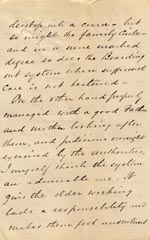 develop into a curse – but
so might the family cutter
and in a more marked
degree so does the Boarding
out system where sufficient
care is not bestowed –
On the other hand properly
managed with a good Father
and mother looking after
them, and judicious oversight
exercised by the authorities,
I myself think the system
an admirable one. It
gives the elder working
lads a responsibility and
makes them feel